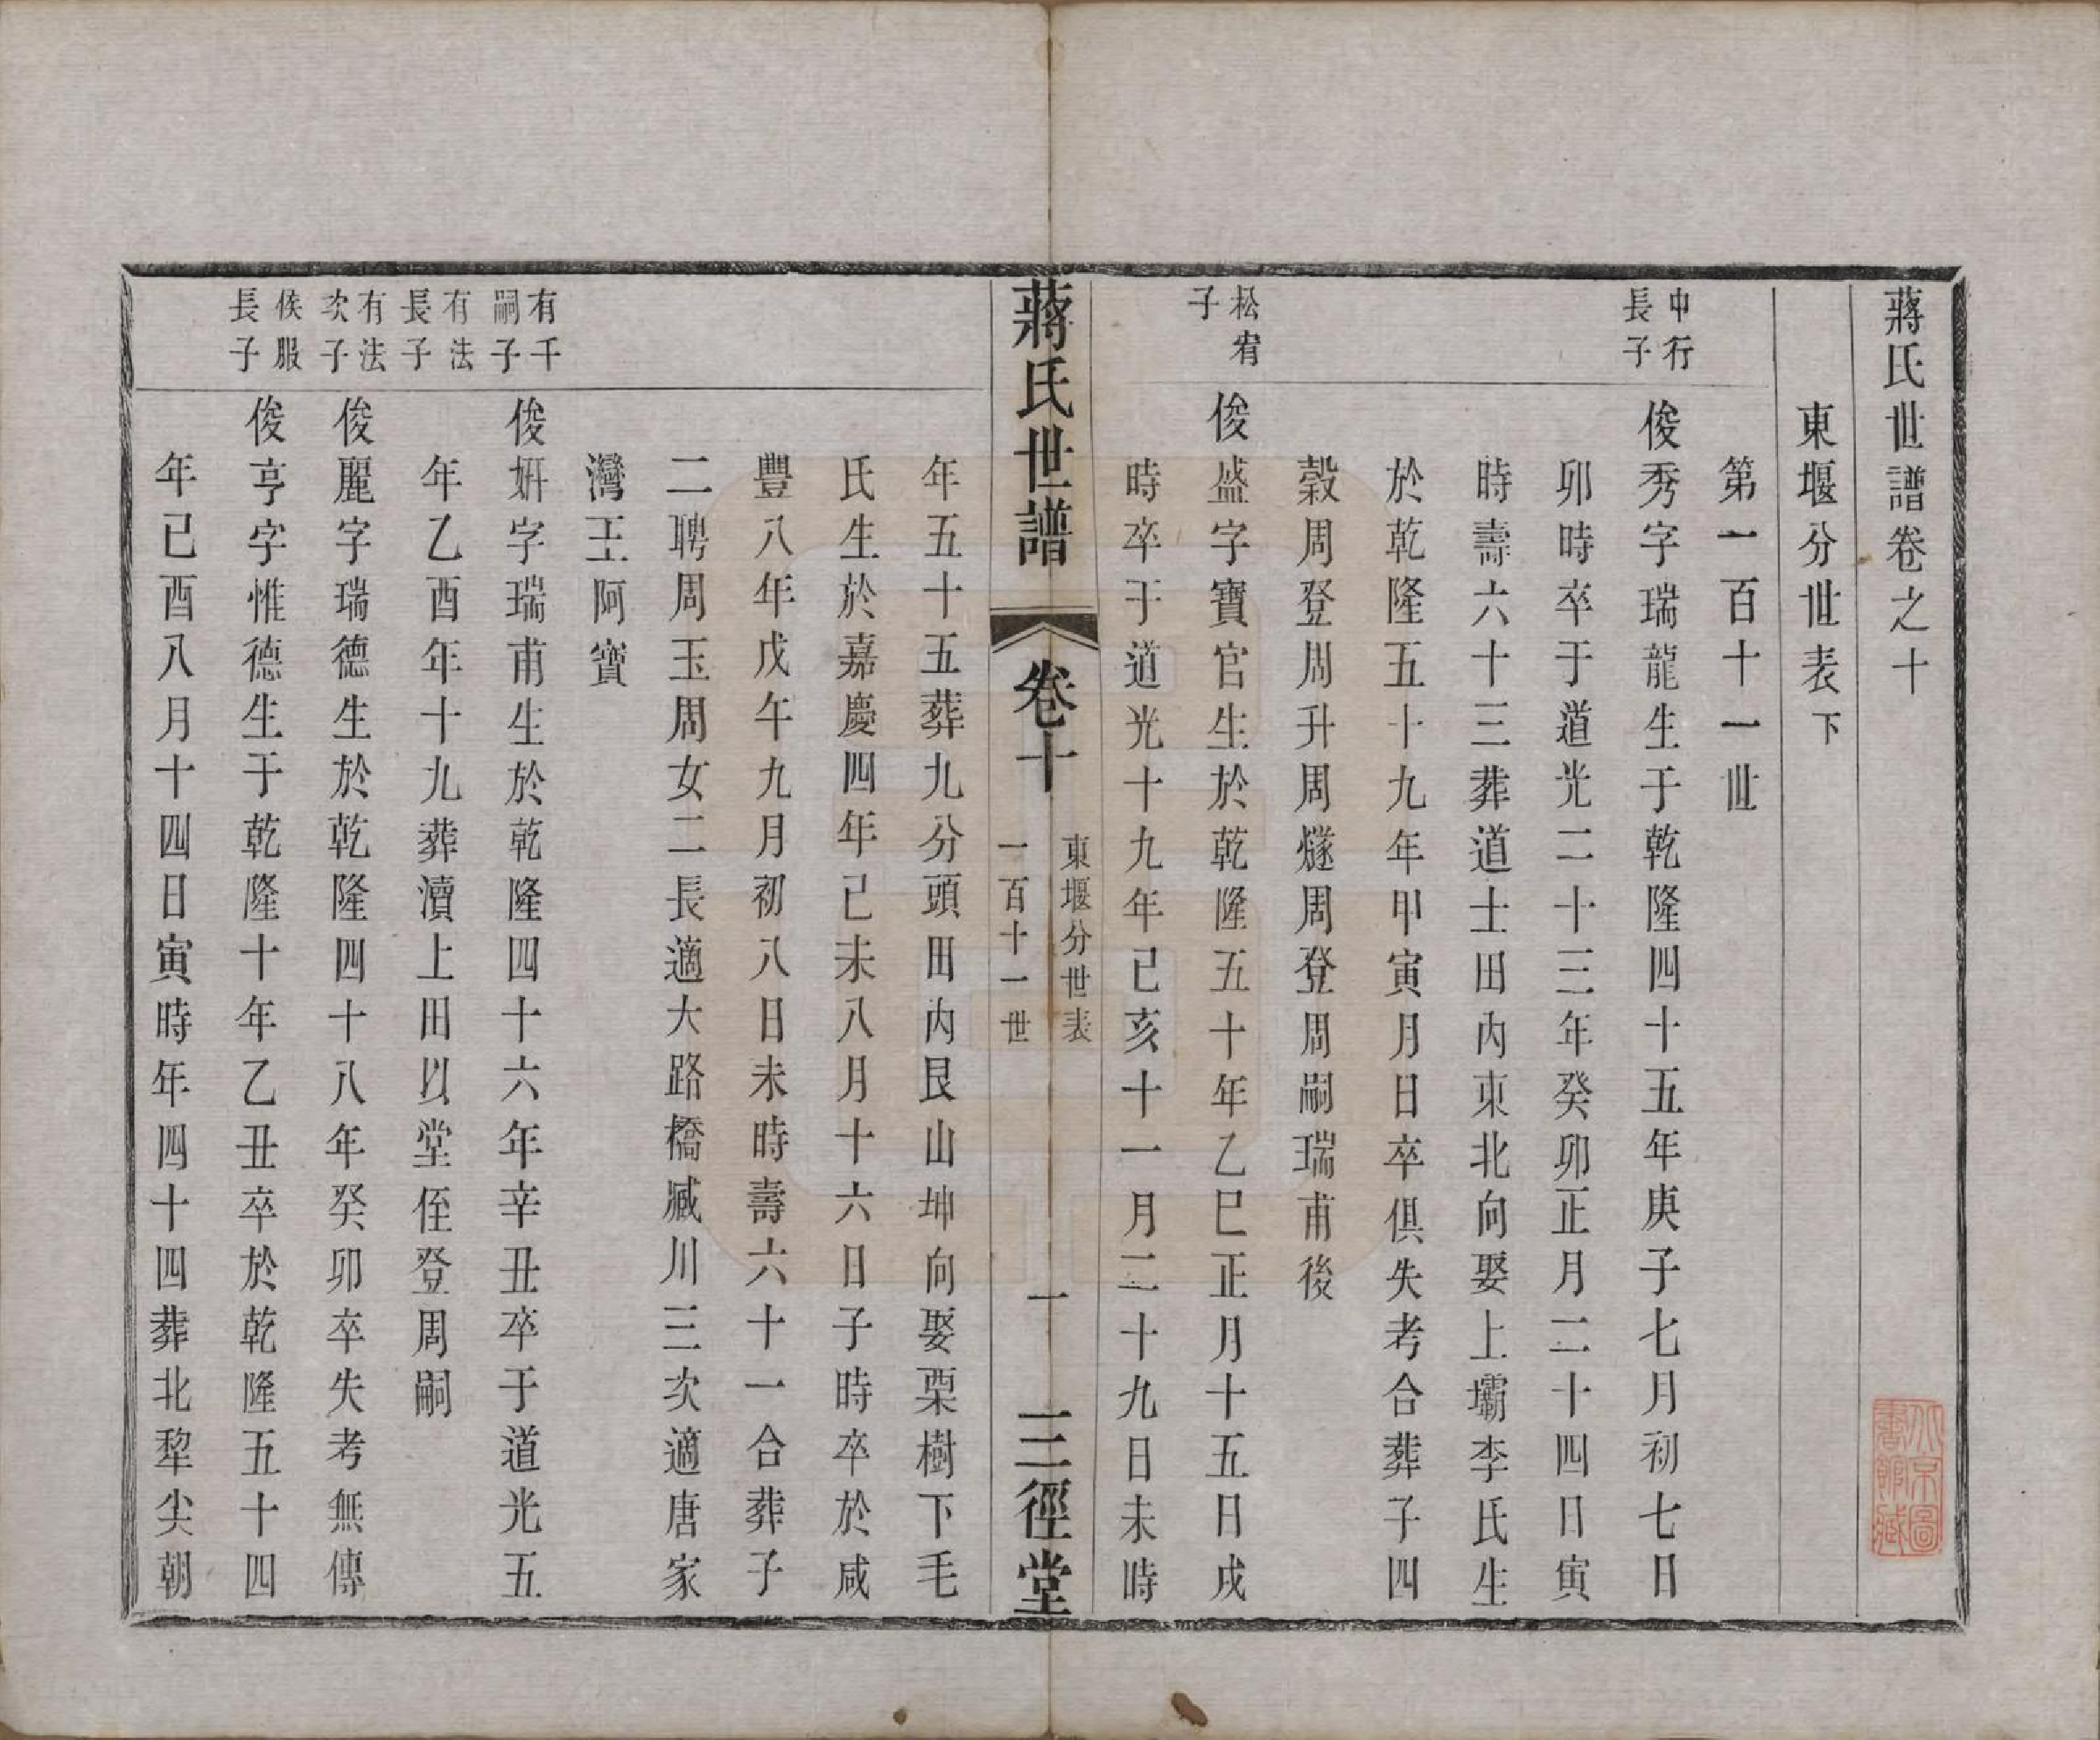 蔣氏世譜卷之十
東堰分世表下
第一百十一世
中行
長子
俊秀字瑞龍生于乾隆四十五年庚子七月初七日
卯時卒于道光二十三年癸卯正月二十四日寅
時壽六十三葬道士田內東北向娶上壩李氏生
於乾隆五十九年甲寅月日卒俱失考合葬子四
穀周登周升周燧周登周嗣瑞甫後
松宥
子
俊盛字寶官生於乾隆五十年乙巳正月十五日戌
時卒于道光十九年己亥十一月二十九日未時
蔣氏世譜
卷十
東堰分世表
一百十一世
一
三徑堂
年五十五葬九分頭田內艮山坤向娶栗樹下毛
氏生於嘉慶四年己未八月十六日子時卒於咸
豐八年戊午九月初八日未時壽六十一合葬子
二聘周玉周女二長適大路橋臧川三次適唐家
灣王阿寶
有千
嗣子
俊妍字瑞甫生於乾隆四十六年辛丑卒于道光五
年乙酉年十九葬瀆上田以堂侄登周嗣
有法
長子
有法
次子
俊麗字瑞德生於乾隆四十八年癸卯卒失考無傳
侯服
長子
俊亨字惟德生于乾隆十年乙丑卒於乾隆五十四
年己酉八月十四日寅時年四十四葬北犂尖朝